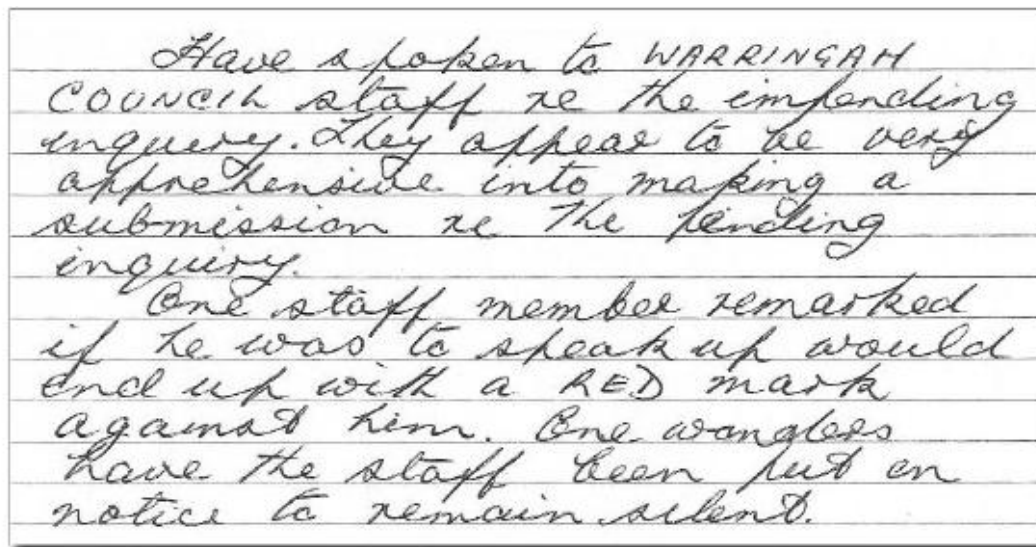 Have spoken to WARRINGAH
COUNCIL staff re the impending
inquiry. They appear to be very
apprehensive into making a
submission re the pending
inquiry.
One staff member remarked
if he was to speak up would
end up with a RED mark
against him. One wonders
have the staff been put on
notice to remain silent.